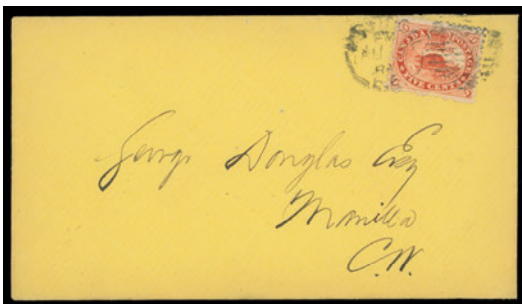 CANADA POSTAGE
FIVE CENTS
George Douglas Esq
Manilla
C.W.